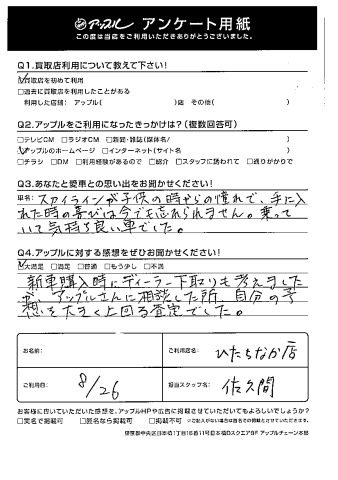 アップル アンケート用紙
この度は当店をご利用いただきありがとうございました。
Q1.買取店利用について教えて下さい!
☑買取店を初めて利用
□過去に買取店を利用したことがある
利用した店舗: アップル( )店 その他( )
Q2.アップルをご利用になったきっかけは?(複数回答可)
□テレビCM □ラジオCM □新聞・雑誌(媒体名/ )
☑アップルのホームページ □インターネット(サイト名 )
□チラシ □DM □利用経験があるので □紹介 □スタッフに誘われて □通りがかりで
Q3.あなたと愛車との思い出をお聞かせください!
車名: スカイラインが子供の時からの憧れで、手に入
れた時の喜びは今でも忘れられません。乗って
いて気持ち良い車でした。
Q4.アップルに対する感想をぜひお聞かせください!
☑大満足 □満足 □普通 □もう少し □不満
新車購入時にディーラー下取りも考えました
が、アップルさんに相談した所、自分の予
想を大きく上回る査定でした。
お名前:
ご利用店名: ひたちなか店
ご利用日: 8/26
担当スタッフ名: 佐久間
お客様に書いていただいた感想を、アップルHPや広告に掲載させていただいてもよろしいでしょうか?
□実名で掲載可 □匿名なら掲載可 □掲載不可 ※ご記入がない場合は匿名での掲載とさせていただきます。
東京都中央区日本橋1丁目16番11号日本橋Dスクエア8F アップルチェーン本部